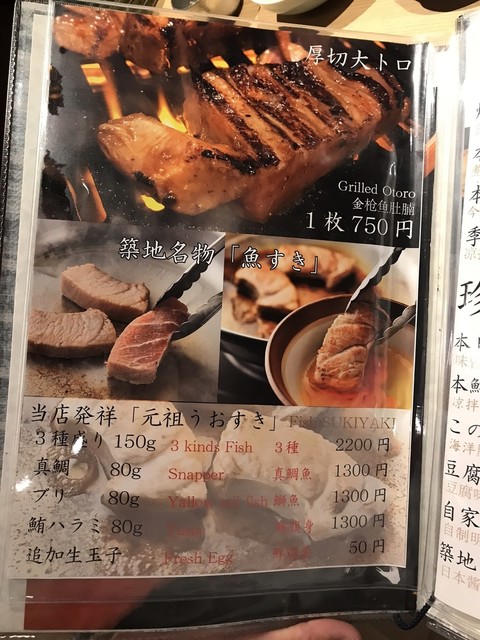 厚切大トロ
Grilled Otoro
金枪鱼肚腩
1枚750円
築地名物「魚すき」
当店発祥「元祖うおすき」 Fish SUKIYAKI
3種盛り 150g 3 kinds Fish 3種 2200円
真鯛 80g Snapper 真鯛魚 1300円
ブリ 80g Yallow tail fish 鰤魚 1300円
鮪ハラミ 80g 1300円
追加生玉子 Fresh Egg 50円
珍
本
本鮪
凉拌
この
海洋
豆腐
豆腐
自家
自制
築地
日本酱